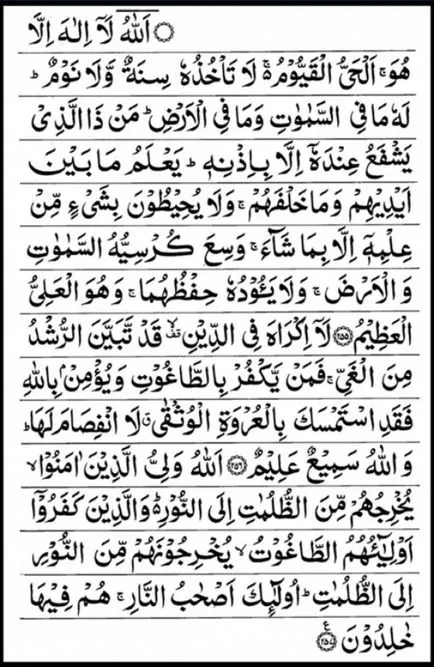 اَللّٰهُ لَاۤ اِلٰهَ اِلَّا
هُوَ ۚ اَلْحَیُّ الْقَیُّوْمُ ۚ۬ لَا تَاْخُذُهٗ سِنَةٌ وَّلَا نَوْمٌ ؕ
لَهٗ مَا فِی السَّمٰوٰتِ وَمَا فِی الْاَرْضِ ؕ مَنْ ذَا الَّذِیْ
یَشْفَعُ عِنْدَهٗۤ اِلَّا بِاِذْنِهٖ ؕ یَعْلَمُ مَا بَیْنَ
اَیْدِیْهِمْ وَمَا خَلْفَهُمْ ۚ وَلَا یُحِیْطُوْنَ بِشَیْءٍ مِّنْ
عِلْمِهٖۤ اِلَّا بِمَا شَآءَ ۚ وَسِعَ كُرْسِیُّهُ السَّمٰوٰتِ
وَالْاَرْضَ ۚ وَلَا یَـُٔوْدُهٗ حِفْظُهُمَا ۚ وَهُوَ الْعَلِیُّ
الْعَظِیْمُ ﴿۲۵۵﴾ لَاۤ اِكْرَاهَ فِی الدِّیْنِ ۙ۟ قَدْ تَّبَیَّنَ الرُّشْدُ
مِنَ الْغَیِّ ۚ فَمَنْ یَّكْفُرْ بِالطَّاغُوْتِ وَیُؤْمِنْۢ بِاللّٰهِ
فَقَدِ اسْتَمْسَكَ بِالْعُرْوَةِ الْوُثْقٰی ۗ لَا انْفِصَامَ لَهَا ؕ
وَاللّٰهُ سَمِیْعٌ عَلِیْمٌ ﴿۲۵۶﴾ اَللّٰهُ وَلِیُّ الَّذِیْنَ اٰمَنُوْا ۙ
یُخْرِجُهُمْ مِّنَ الظُّلُمٰتِ اِلَی النُّوْرِ ؕ۬ وَالَّذِیْنَ كَفَرُوْۤا
اَوْلِیٰٓـُٔهُمُ الطَّاغُوْتُ ۙ یُخْرِجُوْنَهُمْ مِّنَ النُّوْرِ
اِلَی الظُّلُمٰتِ ؕ اُولٰٓئِكَ اَصْحٰبُ النَّارِ ۚ هُمْ فِیْهَا
خٰلِدُوْنَ ﴿۲۵۷﴾ ع